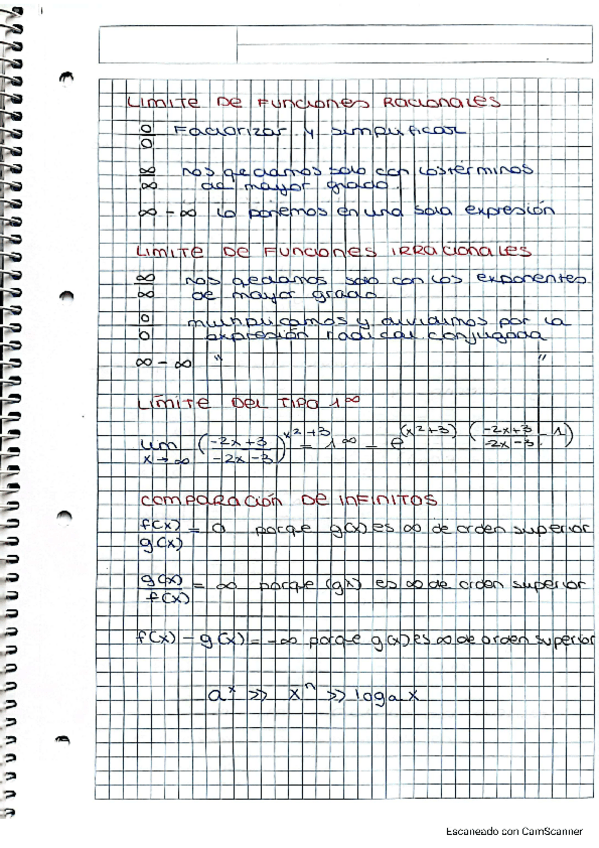 LIMITE DE FUNCIONES RACIONALES
0/0 Factorizar y simplificar
∞/∞ nos qedamos solo con los términos
de mayor grado.
∞ - ∞ lo ponemos en una sola expresión
LIMITE DE FUNCIONES IRRACIONALES
∞/∞ nos qedamos solo con los exponentes
de mayor grado
0/0 multiplicamos y dividimos por la
expresión radical conjugada
∞ - ∞ " "
LÍMITE DEL TIPO 1^∞
lim x→∞ ((-2x+3)/(-2x-3))^(x²+3) = 1^∞ = e^(x²+3) ((-2x+3)/(-2x-3) - 1)
COMPARACIÓN DE INFINITOS
f(x)/g(x) = 0 porque g(x) es ∞ de orden superior
g(x)/f(x) = ∞ porque (gx) es ∞ de orden superior
f(x) - g(x) = -∞ porque g(x) es ∞ de orden superior
a^x >> x^n >> loga x
Escaneado con CamScanner